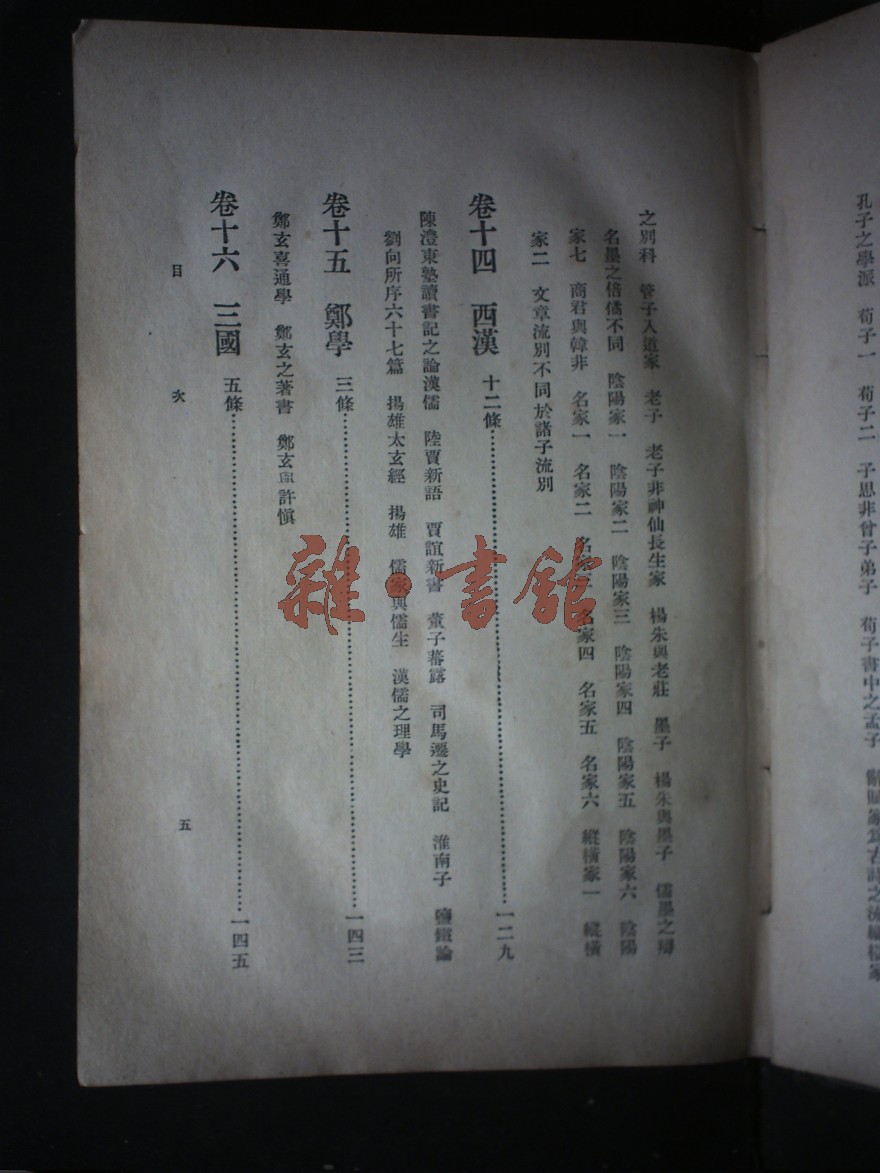 孔子之學派　荀子一　荀子二　子思非曾子弟子　荀子書中之孟子　辭賦家為古詩之流　縱橫家
之別科　管子入道家　老子　老子非神仙長生家　楊朱與老莊　墨子　楊朱與墨子　儒墨之辯
名墨之倍僪不同　陰陽家一　陰陽家二　陰陽家三　陰陽家四　陰陽家五　陰陽家六　陰陽
家七　商君與韓非　名家一　名家二　名家三　名家四　名家五　名家六　縱橫家一　縱橫
家二　文章流別不同於諸子流別
卷十四　西漢　十二條……一二九
陳澧東塾讀書記之論漢儒　陸賈新語　賈誼新書　董子蕃露　司馬遷之史記　淮南子　鹽鐵論
劉向所序六十七篇　揚雄太玄經　揚雄　儒家與儒生　漢儒之理學
卷十五　鄭學　三條……一四三
鄭玄喜通學　鄭玄之著書　鄭玄與許慎
卷十六　三國　五條……一四五
目次
五
雜·書館